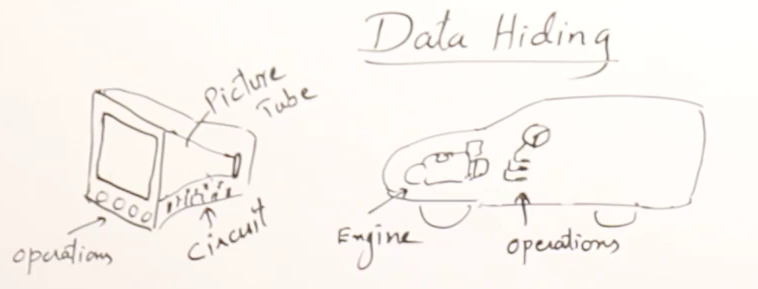 Data Hiding
Picture
Tube
operations
Circuit
Engine
operations